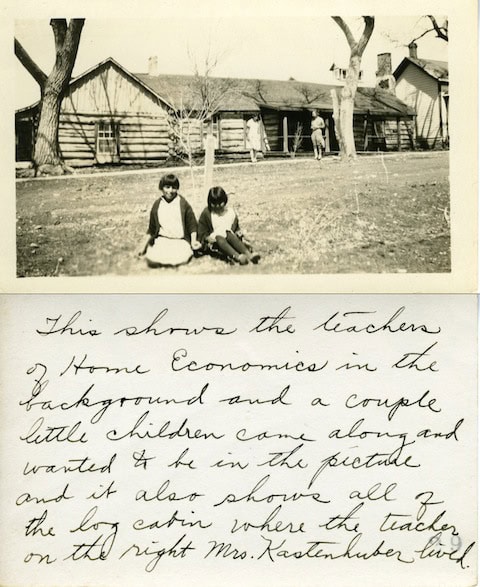 This shows the teachers
of Home Economics in the
background and a couple
little children came along and
wanted to be in the picture
and it also shows all of
the log cabin where the teacher
on the right Mrs. Kastenhuber lived.